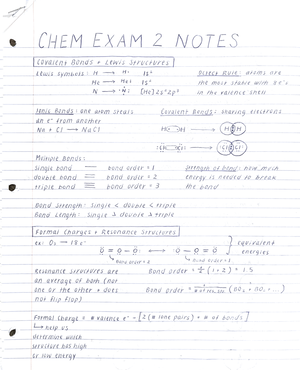 CHEM EXAM 2 NOTES
Covalent Bonds + Lewis Structures
Lewis symbols: H → H· 1s¹
Octet Rule: atoms are
He → He: 1s²
the most stable with 8 e⁻s
N → ·N: [He]2s²2p³
in the valence shell
Ionic Bonds: one atom steals
Covalent Bonds: sharing electrons
an e⁻ from another
Na + Cl → NaCl
Multiple Bonds:
single bond — bond order = 1
Strength of bond: how much
double bond = bond order = 2
energy is needed to break
triple bond ≡ bond order = 3
the bond
Bond Strength: single < double < triple
Bond Length: single > double > triple
Formal Charges + Resonance Structures
ex: O₃ → 18e⁻
equivalent
energies
Resonance structures are
Bond order = ½ (1+2) = 1.5
an average of both (not
one or the other + does
Bond order = (BO₁ + BO₂ + ...)
not flip flop)
Formal Charge = # valence e⁻ - [2(# lone pairs) + # of bonds]
↳ help us
determine which
structure has high
or low energy